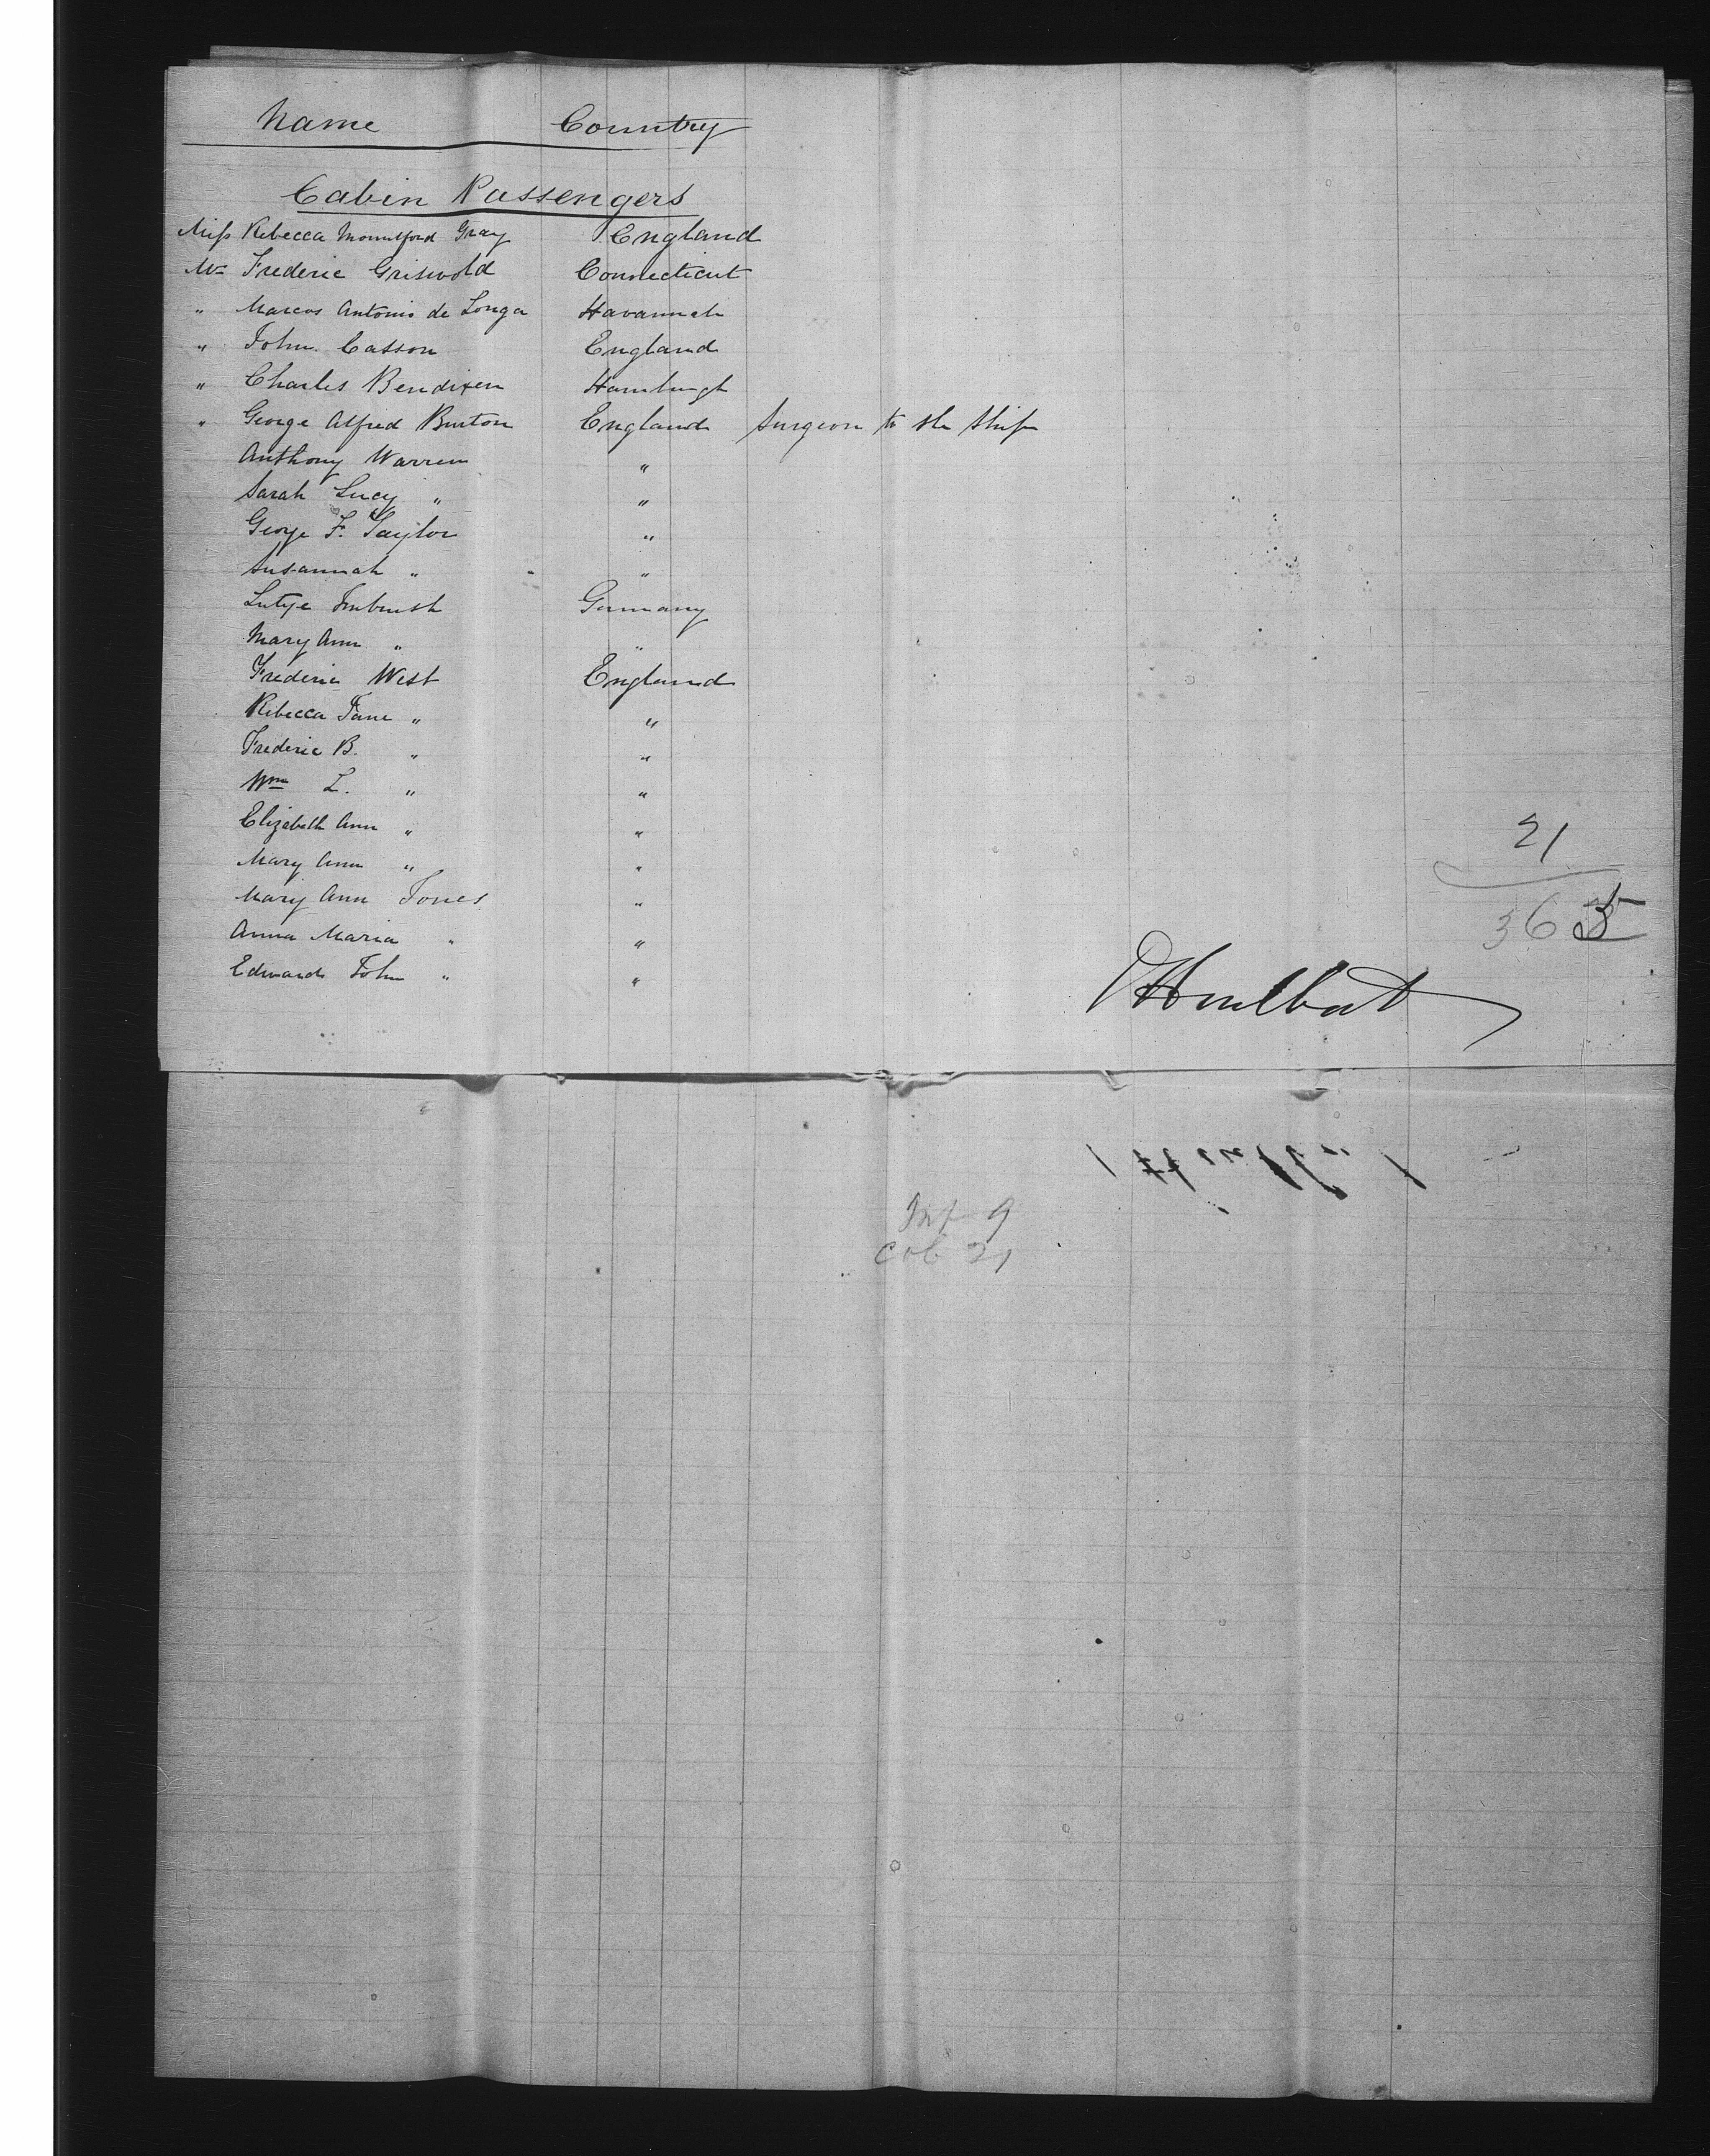 Name Country
Cabin Passengers
Miss Rebecca Mountford Gray England
Mr Frederic Griswold Connecticut
" Marcos Antonio de Longa Havannah
" John Casson England
" Charles Bendixen Hamburgh
" George Alfred Burton England Surgeon to the Ship
Anthony Warren "
Sarah Lucy " "
George F. Taylor "
Susannah " "
Germany
Mary Ann " "
Frederic West England
Rebecca Jane " "
Frederic B. " "
Wm L. " "
Elizabeth Ann " "
Mary Ann " "
Mary Ann Jones "
Anna Maria " "
Edward John " "
21
365
Hurlbut
Inf 9
Cab 21